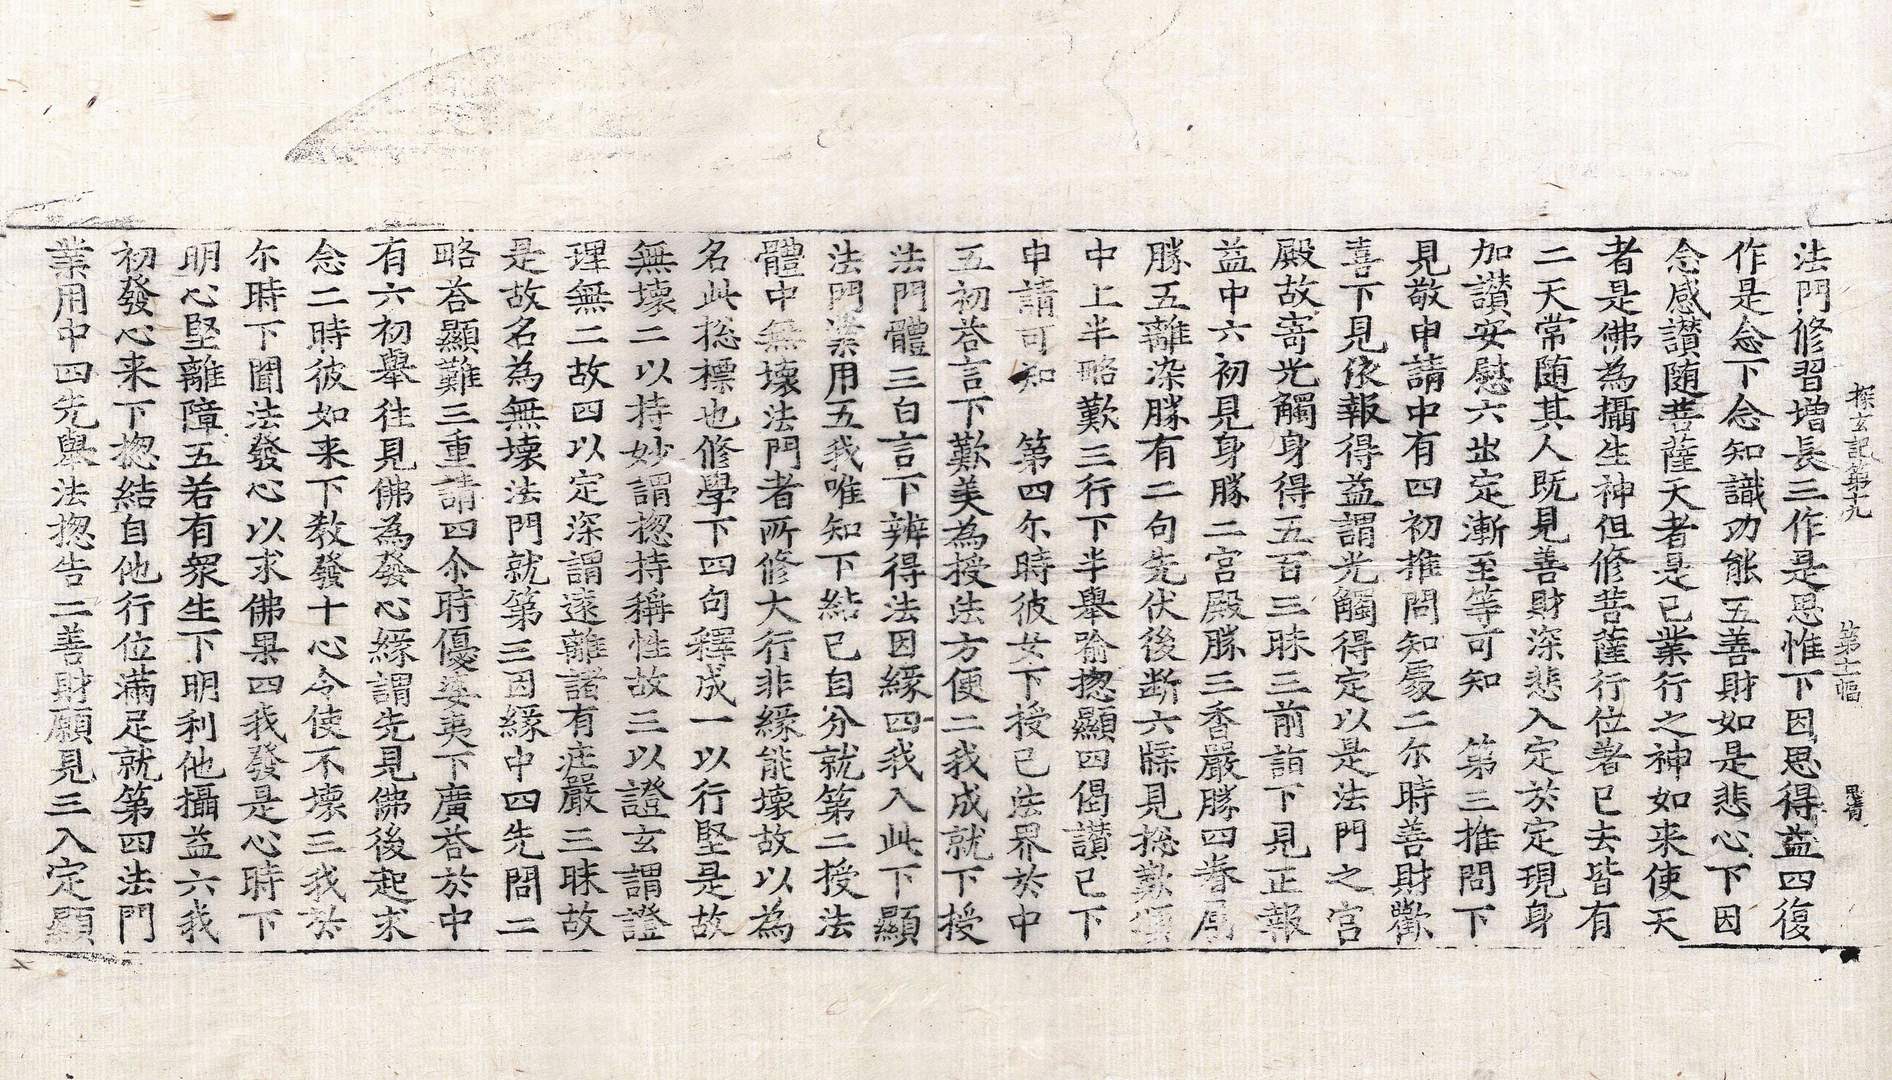 探玄記第十九　第十二幅
法門修習增長三作是思惟下因思得益四復
作是念下念知識功能五善財如是悲心下因
念感讃随菩薩天者是已業行之神如来使天
者是佛為攝生神但修菩薩行位著已去皆有
二天常随其人既見善財深悲入定於定現身
加讃安慰六出定漸至等可知　第三推問下
見敬申請中有四初推問知處二尓時善財歡
喜下見依報得益謂光觸得定以是法門之宮
殿故寄光觸身得五百三昧三前詣下見正報
益中六初見身勝二宮殿勝三香嚴勝四眷属
勝五離染勝有二句先伏後断六牒見捴歎便
中上半略歎三行下半舉喻捴顯四偈讃已下
申請可知　第四尓時彼女下授已法界於中
五初荅言下歎美為授法方便二我成就下授
法門體三白言下辨得法因緣四我入此下顯
法門業用五我唯知下結已自分就第二授法
體中無壊法門者所修大行非緣能壊故以為
名此捴標也修學下四句釋成一以行堅是故
無壊二以持妙謂捴持稱性故三以證玄謂證
理無二故四以定深謂遠離諸有庄嚴三昧故
是故名為無壊法門就第三因緣中四先問二
略荅顯難三重請四尒時優婆夷下廣荅於中
有六初舉往見佛為發心緣謂先見佛後起求
念二時彼如来下敎發十心令使不壊三我於
尓時下聞法發心以求佛果四我發是心時下
明心堅離障五若有衆生下明利他攝益六我
初發心来下捴結自他行位滿足就第四法門
業用中四先舉法捴告二善財願見三入定顯